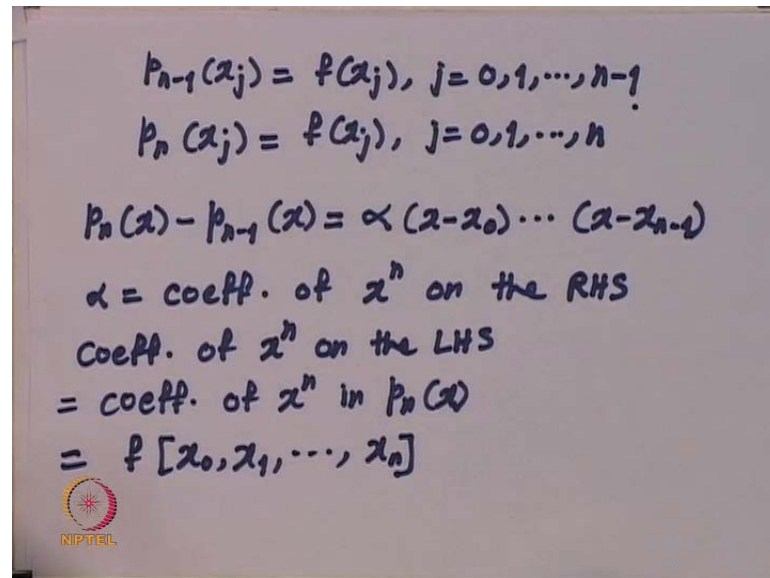 p_{n-1}(x_j) = f(x_j), j = 0, 1, ..., n-1.
p_n(x_j) = f(x_j), j = 0, 1, ..., n
p_n(x) - p_{n-1}(x) = α (x-x_0) ... (x-x_{n-1})
α = coeff. of x^n on the RHS
Coeff. of x^n on the LHS
= coeff. of x^n in p_n(x)
= f [x_0, x_1, ..., x_n]
NPTEL